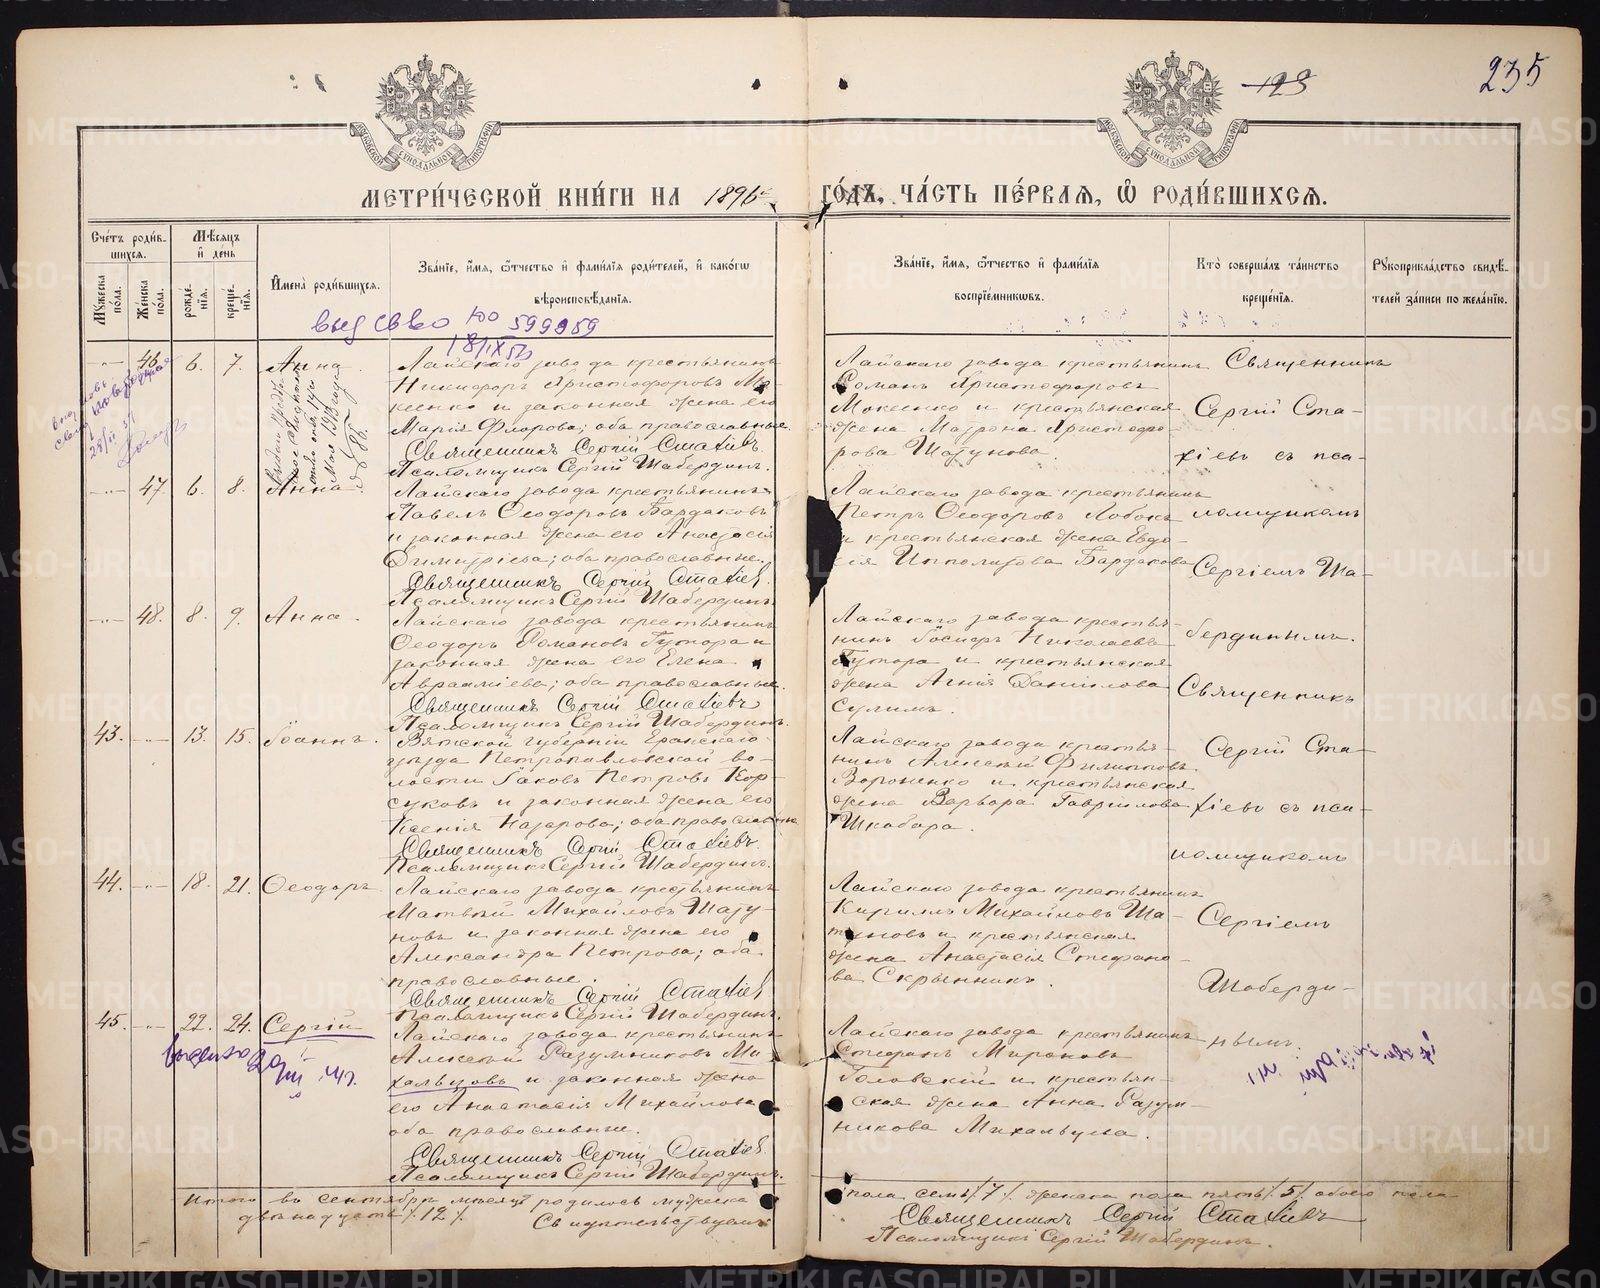 235
123
МОСКОВСКОЙ СѴНОДАЛЬНОЙ ТИПОГРАФІИ
МОСКОВСКОЙ СѴНОДАЛЬНОЙ ТИПОГРАФІИ
МЕТРИ́ЧЕСКОЙ КНИ́ГИ НА 1896 ГО́ДЪ, ЧА́СТЬ ПЕ́РВАЯ, Ѡ РОДИ́ВШИХСЯ.
Сче́тъ роди́в-
шихся.
Мꙋ́жеска по́ла.
Же́нска по́ла.
Мѣ́сяцъ
и҆ де́нь
рожде́-
нїя.
креще́-
нїя.
И҆мена̀ роди́вшихся.
Зва́нїе, и҆́мя, ѻ҆́тчество и҆ фами́лїя роди́телей, и҆ како́гѡ
вѣроисповѣ́данїя.
Зва́нїе, и҆́мя, ѻ҆́тчество и҆ фами́лїя
воспрїе́мниковъ.
Кто̀ соверша́лъ та́инство
креще́нїя.
Рꙋкоприкла́дство свидѣ́-
телей за́писи по жела́нїю.
599959
46 6. 7. Анна
Лайскаго завода крестьянинъ
Никифоръ Христофоровъ Мо-
кеенко и законная жена его
Марія Флорова; оба православные.
Священникъ Сергій Статіевъ.
Псаломщикъ Сергій Шабердинъ.
Лайскаго завода крестьянинъ
Романъ Христофоровъ
Мокеенко и крестьянская
жена Матрона Христофо-
рова Шатунова.
Священникъ
Сергій Ста-
тіевъ съ пса-
ломщикомъ
Сергіемъ Ша-
бердинымъ.
47 6. 8. Анна
Лайскаго завода крестьянинъ
Павелъ Ѳеодоровъ Бардаковъ
и законная жена его Анастасія
Димитріева; оба православные.
Священникъ Сергій Статіевъ.
Псаломщикъ Сергій Шабердинъ.
Лайскаго завода крестьянинъ
Петръ Ѳеодоровъ Лобокъ
и крестьянская жена Евдо-
кія Ипполитова Бардакова
48. 8. 9. Анна.
Лайскаго завода крестьянинъ
Ѳеодоръ Романовъ Бутора и
законная жена его Елена
Авраамьева; оба православные.
Священникъ Сергій Статіевъ
Псаломщикъ Сергій Шабердинъ.
Лайскаго завода крестья-
нинъ Іосифъ Николаевъ
Бутора и крестьянская
жена Агнія Даніилова
Сулима.
Священникъ
Сергій Ста-
тіевъ съ пса-
ломщикомъ
Сергіемъ
Шаберди-
нымъ.
43. 13. 15. Іоаннъ.
Вятской губерніи Яранскаго
уѣзда Петропавловской во-
лости Іаковъ Петровъ Кор-
суковъ и законная жена его
Ксенія Назарова; оба православные
Священникъ Сергій Статіевъ.
Псаломщикъ Сергій Шабердинъ.
Лайскаго завода крестья-
нинъ Алексѣй Филипповъ
Вороненко и крестьянская
жена Варвара Гавріилова
Шкабара.
44. 18. 21. Ѳеодоръ
Лайскаго завода крестьянинъ
Матвѣй Михайловъ Шату-
новъ и законная жена его
Александра Петрова; оба
православные.
Священникъ Сергій Статіевъ
Псаломщикъ Сергій Шабердинъ.
Лайскаго завода крестьянинъ
Кириллъ Михайловъ Ша-
туновъ и крестьянская
жена Анастасія Стефано-
ва Скрынникъ.
45. 22. 24. Сергій
Лайскаго завода крестьянинъ
Алексѣй Разумниковъ Ми-
хальцовъ и законная жена
его Анастасія Михайлова
оба православные.
Священникъ Сергій Статіевъ
Псаломщикъ Сергій Шабердинъ.
Лайскаго завода крестьянинъ
Стефанъ Мироновъ
Головскій и крестьян-
ская жена Анна Разум-
никова Михальцева.
Итого въ сентябрѣ мѣсяцѣ родилось мужеска пола семь /7/, женска пола пять /5/ обоего пола
двѣнадцать /12/.
Свидѣтельствуемъ:
Священникъ Сергій Статіевъ
Псаломщикъ Сергій Шабердинъ.
METRIKI.GASO-URAL.RU